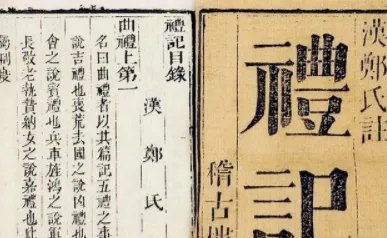 漢鄭氏註
禮記
稽古
禮記目錄
漢鄭氏
曲禮上第一
名曰曲禮者以其篇記五禮之事
說吉禮也喪荒去國之說凶禮也
會之說賓禮也兵車旌鴻之說軍
長敬老執贄納女之說嘉禮也此